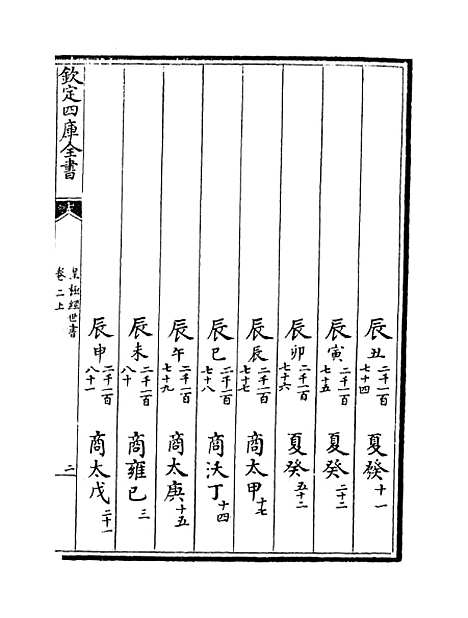 辰丑二千一百七十四 夏發十一
辰寅二千一百七十五 夏癸二十二
辰卯二千一百七十六 夏癸五十二
辰辰二千一百七十七 商太甲十七
辰巳二千一百七十八 商沃丁十四
辰午二千一百七十九 商太庚十五
辰未二千一百八十 商雍已三
辰申二千一百八十一 商太戊二十一
欽定四庫全書
皇極經世書
卷二上
二